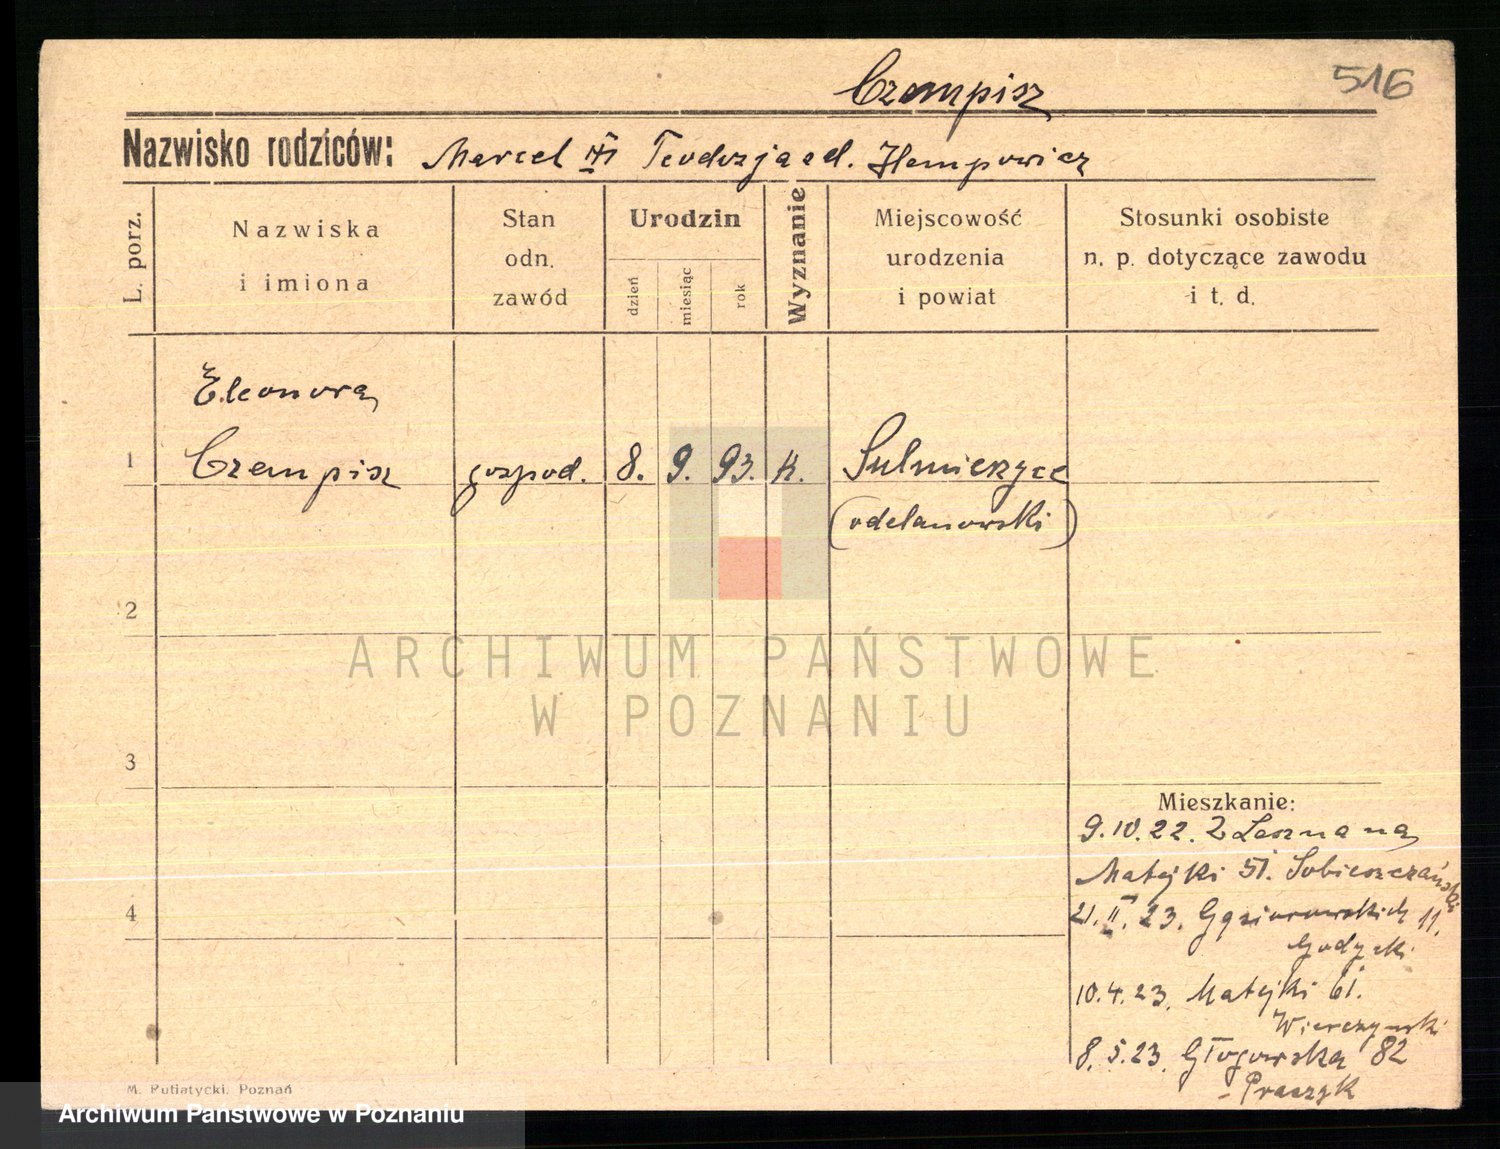 Czempisz
516
Nazwisko rodziców: Marcel i Teodozja od. Hempowicz
L. porz.
Nazwiska
i imiona
Stan
odn.
zawód
Urodzin
dzień
miesiąc
rok
Wyznanie
Miejscowość
urodzenia
i powiat
Stosunki osobiste
n. p. dotyczące zawodu
i t. d.
Eleonora
1 Czempisz gospod. 8. 9. 93. K. Sulmierzyce
(odolanowski)
2
3
4
ARCHIWUM PAŃSTWOWE
W POZNANIU
Mieszkanie:
9.10.22. Z Leszna na
Matejki 51. Sobieszczański
21.II.23. Gąsiorowskich 11.
Godycki
10.4.23. Matejki 61.
Wierczynski
8.5.23. Głogowska 82
- Praczyk
M. Putiatycki. Poznań
Archiwum Państwowe w Poznaniu